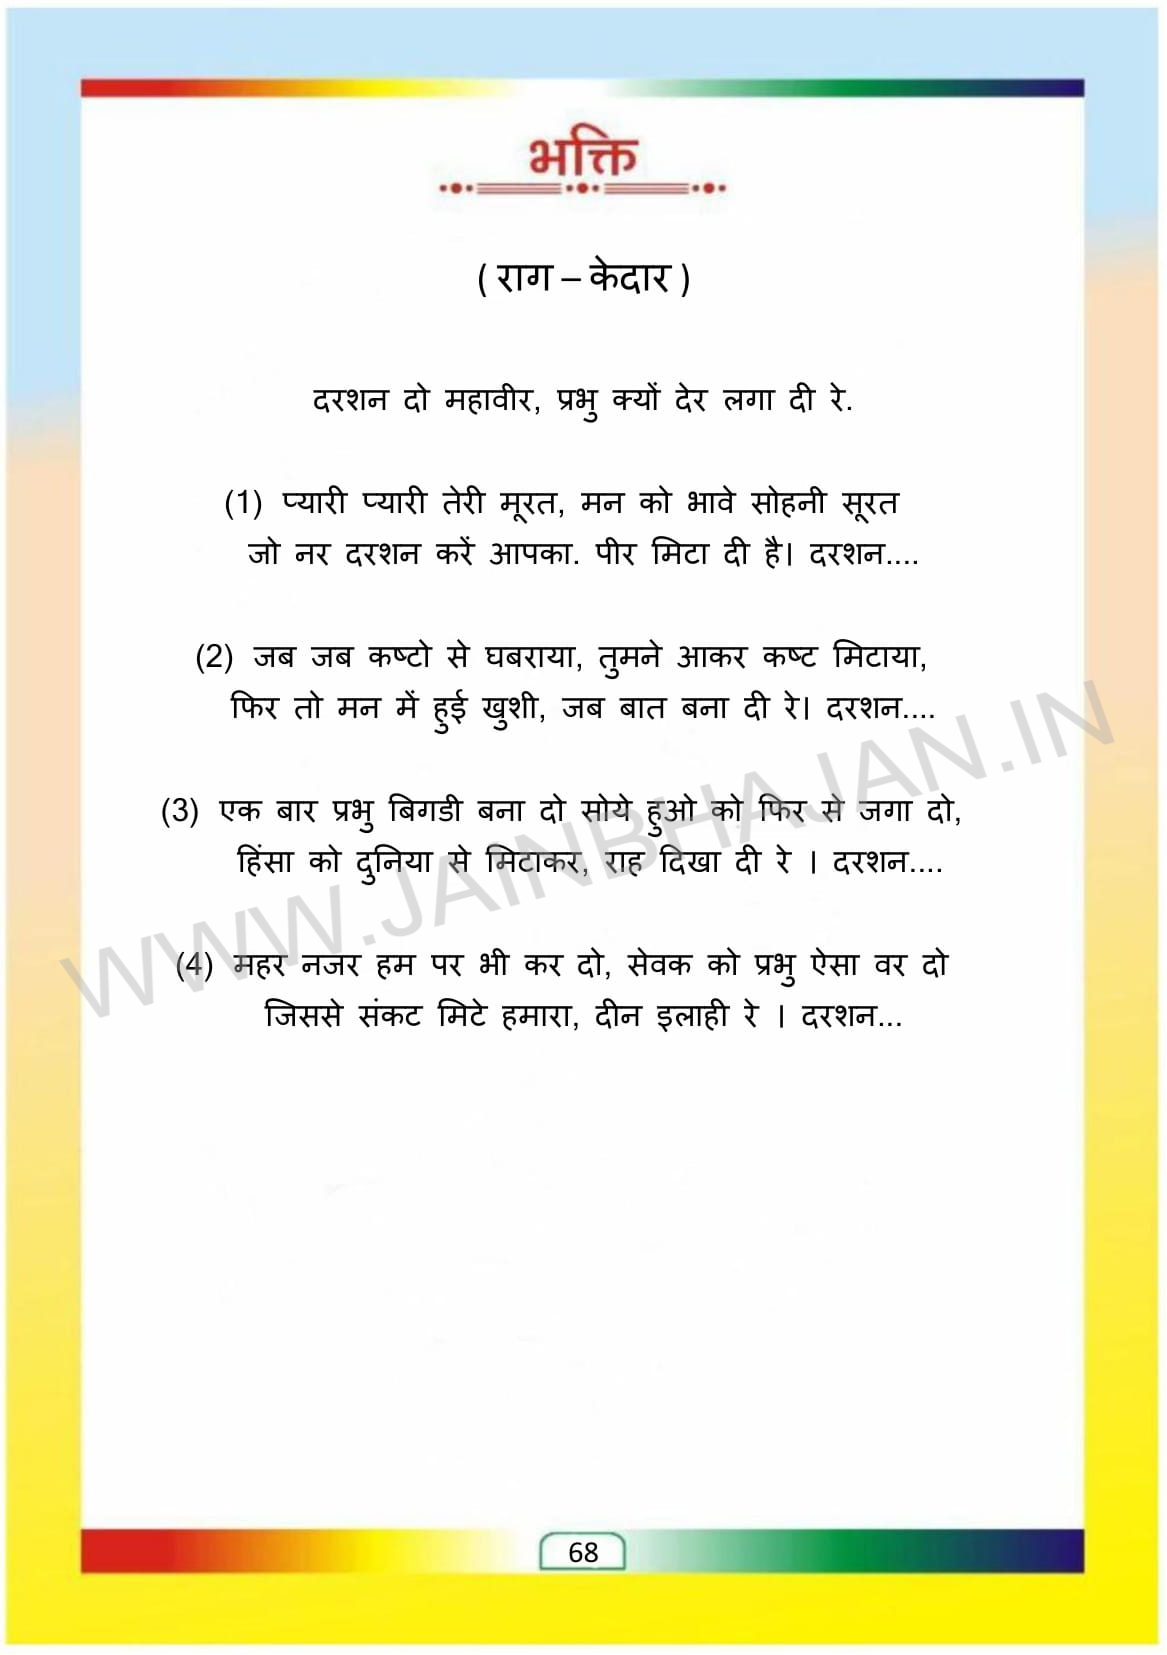 भक्ति
( राग – केदार )
दरशन दो महावीर, प्रभु क्यों देर लगा दी रे.
(1) प्यारी प्यारी तेरी मूरत, मन को भावे सोहनी सूरत
जो नर दरशन करें आपका. पीर मिटा दी है। दरशन....
(2) जब जब कष्टो से घबराया, तुमने आकर कष्ट मिटाया,
फिर तो मन में हुई खुशी, जब बात बना दी रे। दरशन....
(3) एक बार प्रभु बिगडी बना दो सोये हुओ को फिर से जगा दो,
हिंसा को दुनिया से मिटाकर, राह दिखा दी रे । दरशन....
(4) महर नजर हम पर भी कर दो, सेवक को प्रभु ऐसा वर दो
जिससे संकट मिटे हमारा, दीन इलाही रे । दरशन...
WWW.JAINBHAJAN.IN
68